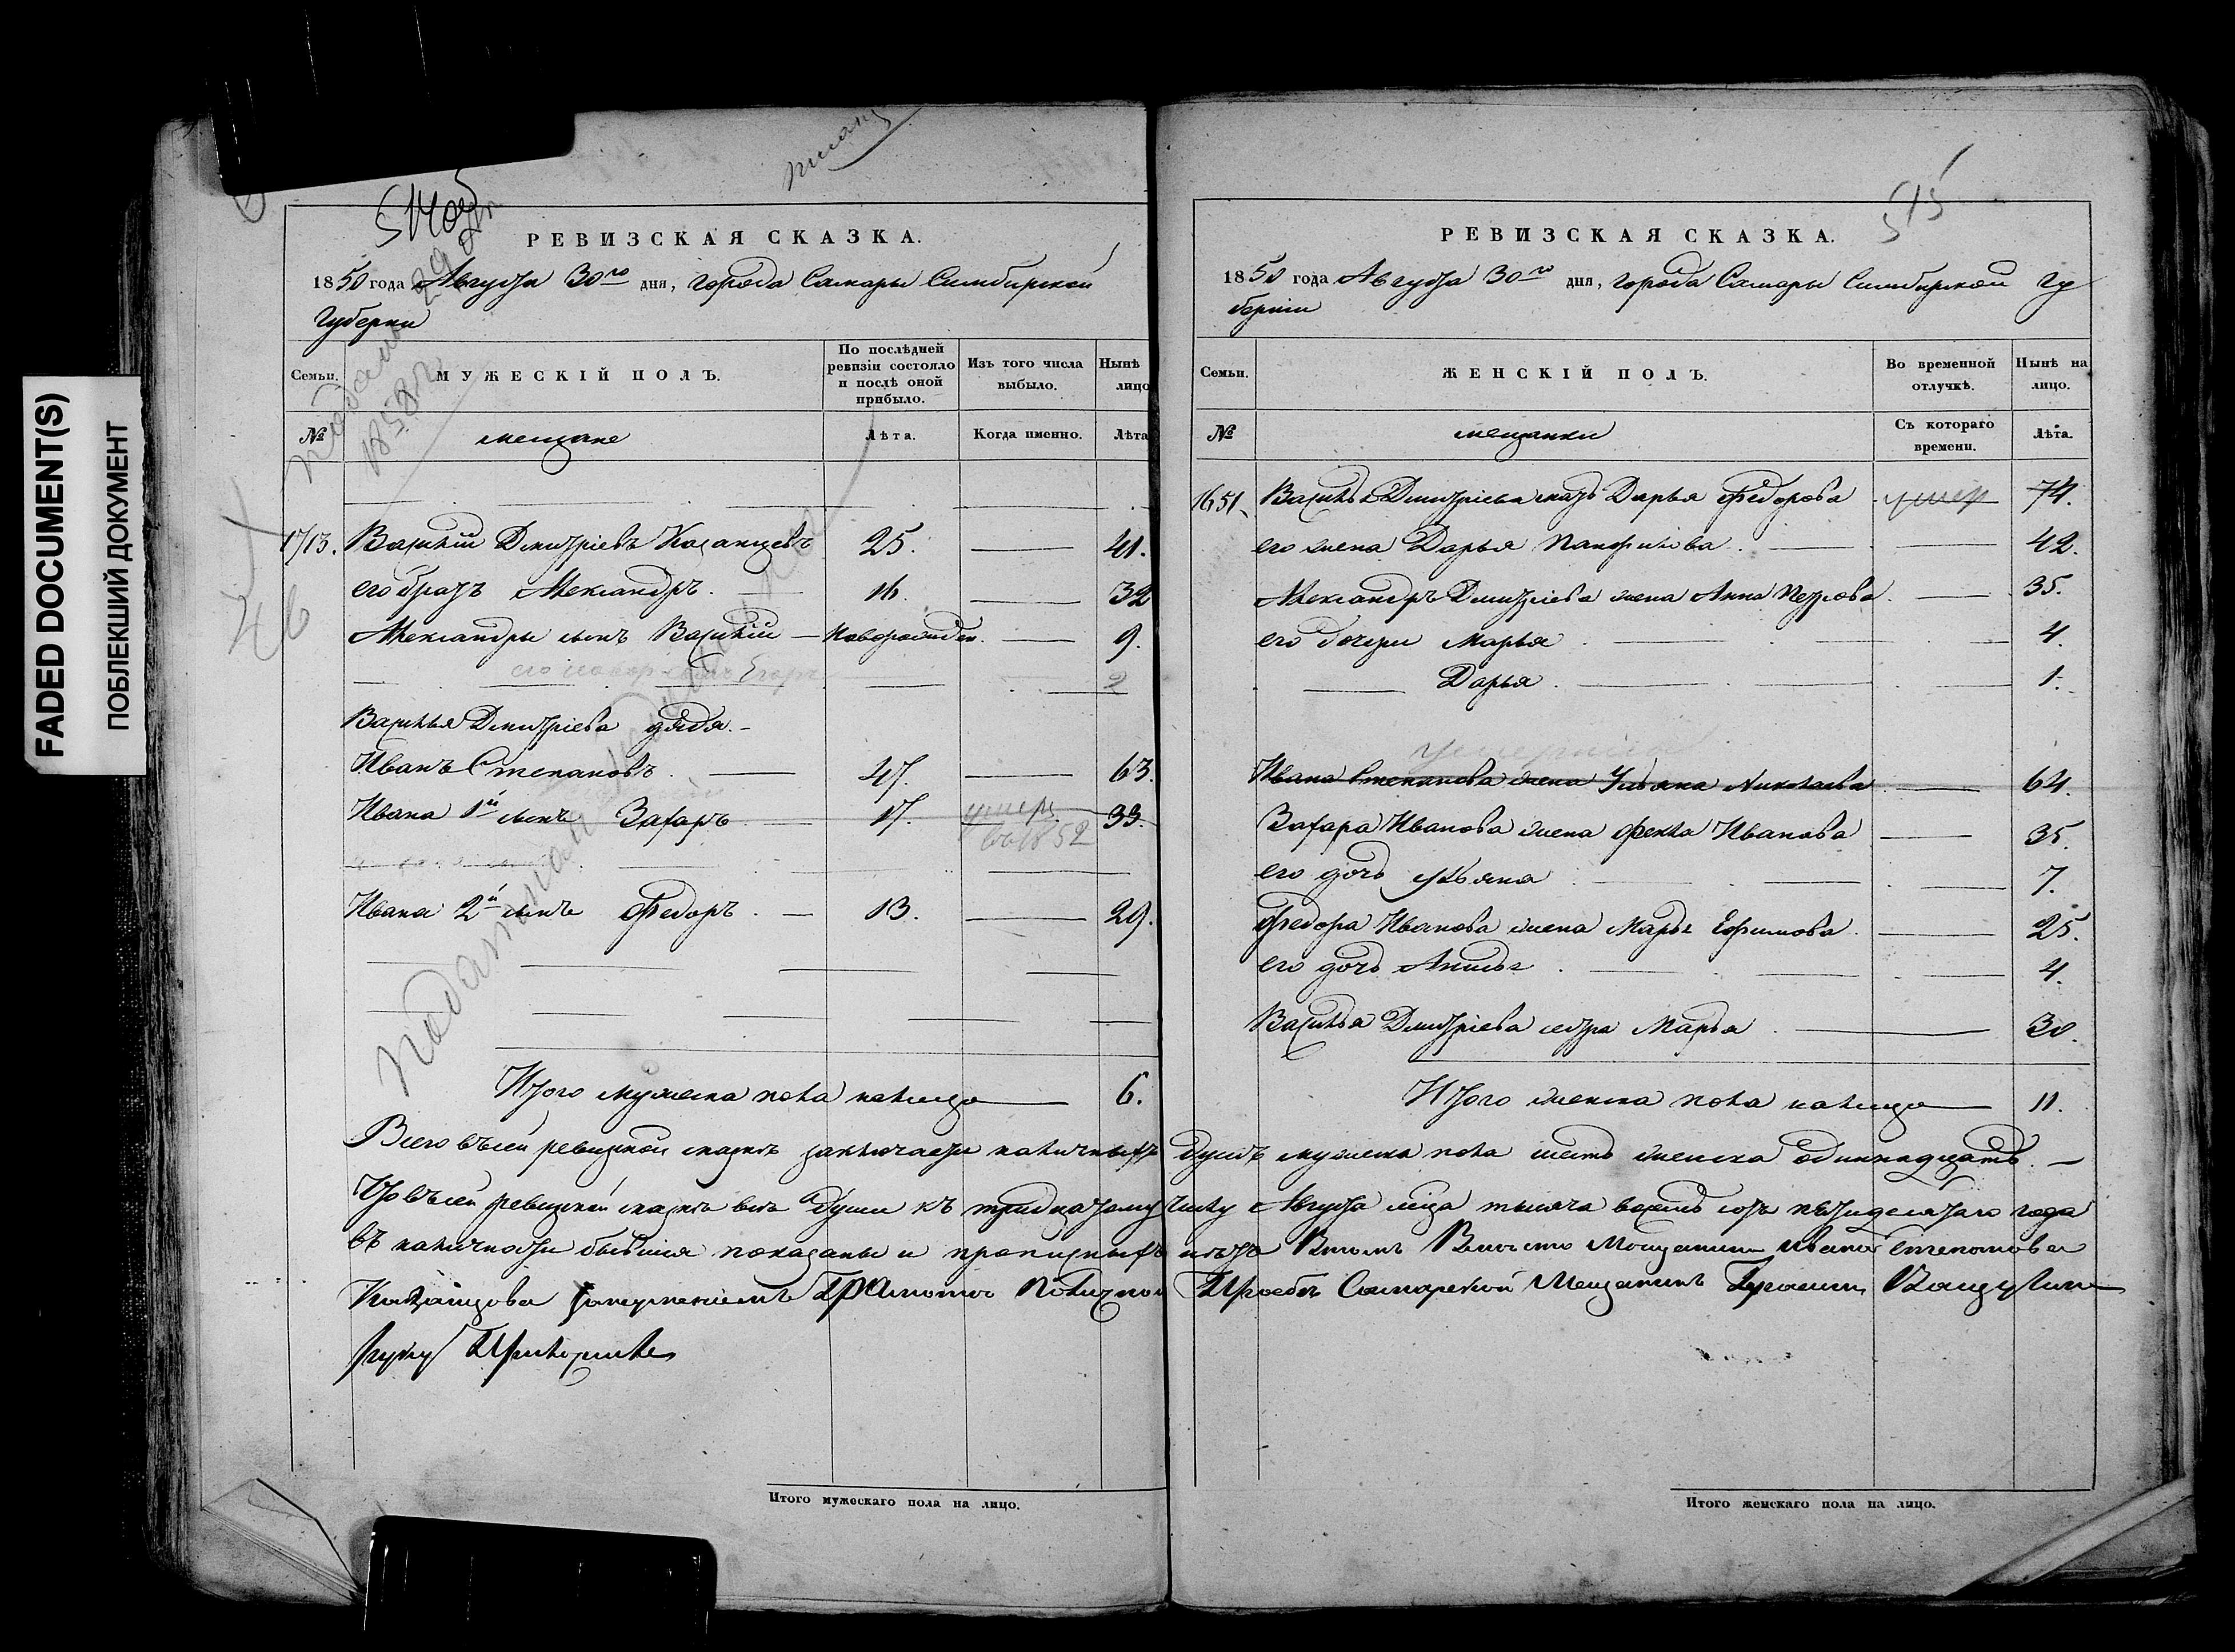 FADED DOCUMENT(S)
ПОБЛЕКШИЙ ДОКУМЕНТ
РЕВИЗСКАЯ СКАЗКА.
1850 года Августа 30го дня, города Самары Симбирской
Губернии
Семьи.
МУЖЕСКІЙ ПОЛЪ.
По послѣдней ревизіи состояло и послѣ оной прибыло.
Изъ того числа выбыло.
Нынѣ лицо
№
мещане
Лѣта.
Когда именно.
Лѣта
1713. Василій Дмитріевъ Казанцевъ 25. 41.
его братъ Александръ. 16. 32
Александры сынъ Василій новорожден. 9.
его новор. сынъ Егоръ 2
Василья Дмитріева дядя.
Иванъ Степановъ. 47. 63.
Ивана 1й сынъ Захаръ 17. умер. въ 1852 33.
Ивана 2й сынъ Федоръ. 13. 29.
Итого мужеска пола налицо 6.
РЕВИЗСКАЯ СКАЗКА.
515
1850 года Августа 30го дня, города Самары Симбирской гу
берніи
Семьи.
ЖЕНСКІЙ ПОЛЪ.
Во временной отлучкѣ.
Нынѣ на лицо.
№
мещанки
Съ котораго времени.
Лѣта.
1651. Василья Дмитріева мать Дарья Федорова умер 74.
его жена Дарья Панфилова. 42.
Александръ Дмитріева жена Анна Петрова. 35.
его дочери Марья 4.
Дарья. 1.
Ивана Степанова жена Ульяна Николаева 64.
Захара Иванова жена Фекла Иванова 35.
его дочь Ульяна 7.
Федора Иванова жена Марья Ефимова. 25.
его дочь 4.
Василья Дмитріева сестра Марья 30.
Итого женска пола налицо 11.
Всего въ сей ревизкой сказкѣ заключается наличныхъ душъ мужеска пола шесть женска одиннадцать.
Что въ сей ревизкой сказкѣ все души къ тридцатому числу Августа мца тысяча восемь сотъ пятидесятаго года
въ наличности бывшія показаны и прописныхъ нѣтъ Втомъ Вместо Мещанина Ивана Степанова
Казанцова грамоте Поличной Прозбе Самарской Мещанинъ
руку Приложилъ
Итого мужескаго пола на лицо.
Итого женскаго пола на лицо.